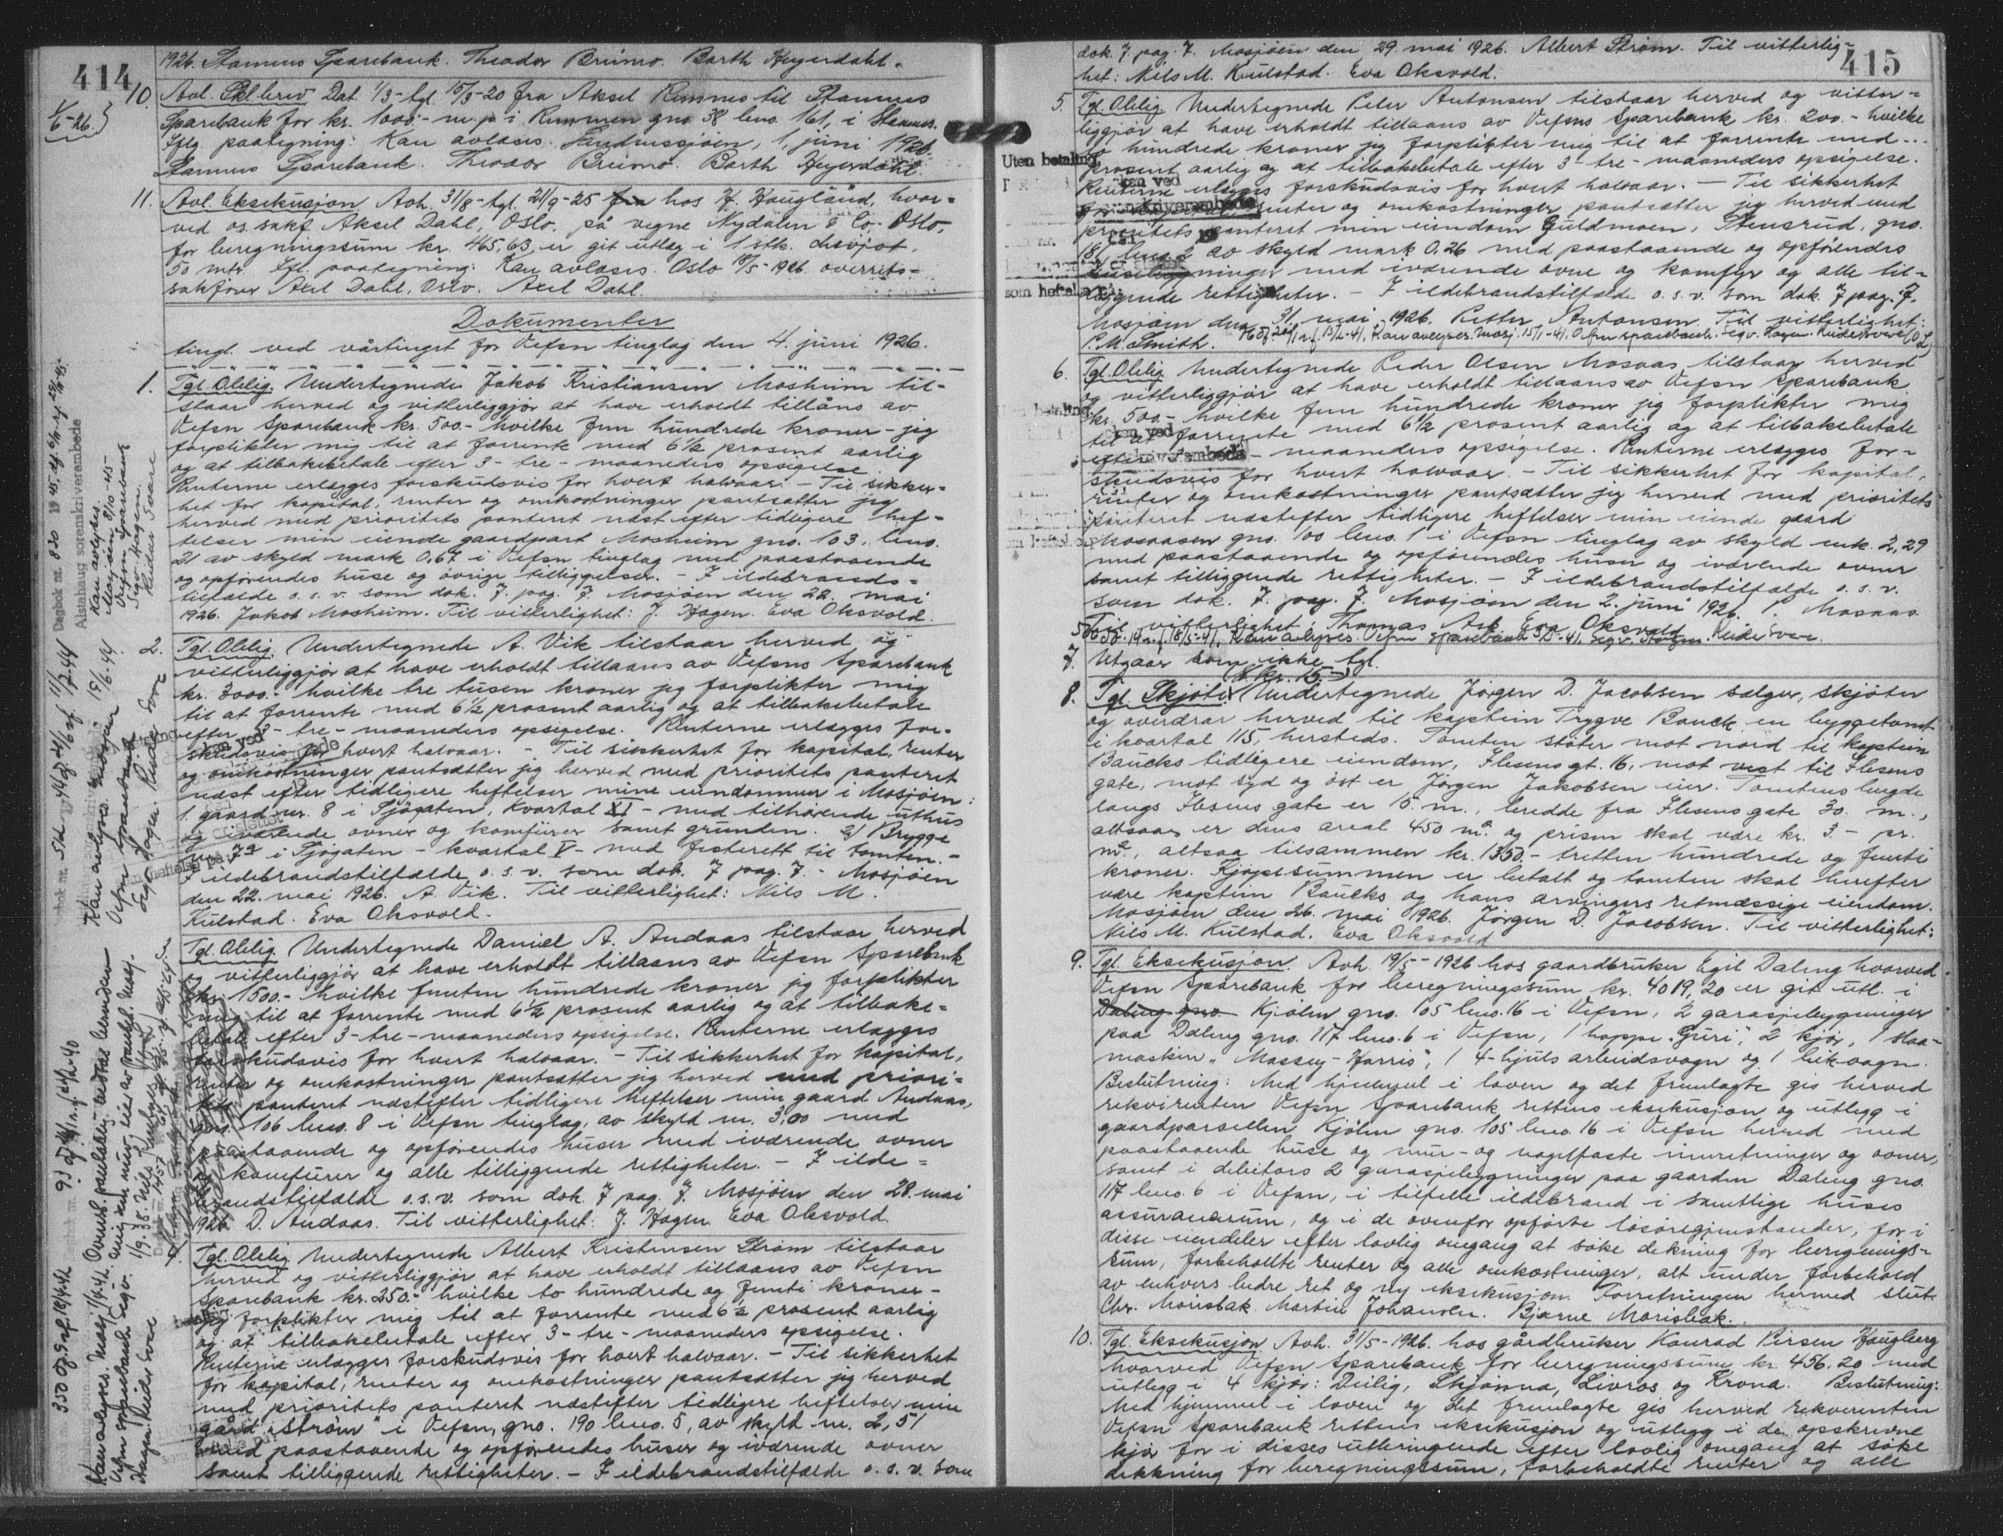 414
1926. Stamnes Sparebank. Theodor Brümo. Barth Heyerdahl.
1/6-26
10. Avl. Skl.brev Dat. 1/3- tgl. 15/3-20 fra Aksel Rimmes til Stamnes
Sparebank for kr. 1000.- m. p. i Rimmen gno. 38 bno. 161, i Stamnes.
Iflg. paategning: Kan avlæses. Sandnessjøen, 1 juni 1926.
Stamnes Sparebank. Theodor Brümo. Barth Heyerdahl.
11. Avl. Eksekusjon Avh. 31/8- tgl. 21/9-25 hos H. Haugland, hvor-
ved os. sakf. Aksel Dahl, Oslo, på vegne Nydalen & Co. Oslo,
for beregningssum kr. 465,63 er git utlæg i 1 stk. chevjot,
50 mtr. Ifl. paategning: Kan avlæses. Oslo 1926. overrets-
sakfører Axel Dahl, Oslo. Axel Dahl.
Dokumenter
tingl. ved vårtinget for Vefsn tinglag den 4. juni 1926.
1. Tgl. Oblig. Undertegnede Jakob Kristiansen Mosheim til-
staar herved og vitterliggjør at have erholdt tillåns av
Vefsn Sparebank kr. 500.- hvilke fem hundrede kroner - jeg
forplikter mig til at forrente med 6 1/2 prosent aarlig
og at tilbakebetale efter 3- tre - maaneders opsigelse.
Renterne erlægges forskudsvis for hvert halvaar. - Til sikker-
het for kapital, renter og omkostninger pantsætter jeg
herved med prioritets panteret næst efter tidligere hef-
telser min eiende gaardpart Mosheim gno. 103. bno.
21 av skyld mark 0,67 i Vefsn tinglag med paastaaende
og opførendes huse og øvrige tilliggelser. - I ildebrands-
tilfælde o.s.v. som dok. 7. pag. 7. Mosjøen den 22. mai
1926. Jakob Mosheim. Til vitterlighet: J. Hagen. Eva Oksvold.
2. Tgl. Oblig. Undertegnede A. Vik tilstaar herved og
vitterliggjør at have erholdt tillaans av Vefsns Sparebank
kr. 3000.- hvilke tre tusen kroner jeg forplikter mig
til at forrente med 6 1/2 prosent aarlig og at tilbakebetale
efter 3- tre- maaneders opsigelse. Renterne erlægges for-
skudsvis for hvert halvaar. - Til sikkerhet for kapital, renter
og omkostninger pantsætter jeg herved med prioritets panteret
næst efter tidligere heftelser mine eiendommer i Mosjøen:
1. gaard nr. 8 i Sjøgaten, kvartal XI - med tilhørende uthus
og iværende ovner og komfürer samt grunden. 2/ Brygge
nr. 7a i Sjøgaten - kvartal V - med festerett til tomten.-
I ildebrandstilfælde o.s.v. som dok. 7 pag. 7.- Mosjøen
den 22. mai 1926. A. Vik. Til vitterlighet: Nils M.
Kulstad. Eva Oksvold.
3. Tgl. Oblig. Undertegnede Daniel A. Andaas tilstaar herved
og vitterliggjør at have erholdt tillaans av Vefsn Sparebank
kr. 1500.- hvilke femten hundrede kroner jeg forplikter
mig til at forrente med 6 1/2 prosent aarlig og at tilbake-
betale efter 3- tre- maaneders opsigelse. Renterne erlægges
forskudsvis for hvert halvaar. - Til sikkerhet for kapital,
renter og omkostninger pantsætter jeg herved med priori-
tets panteret næstefter tidligere heftelser min gaard Andaas,
gno. 106 bno. 8 i Vefsn tinglag, av skyld m. 3,00 med
paastaaende og opførendes huser med iværende ovner
og komfürer og alle tilliggende rettigheter. - I ilde-
brandstilfælde o.s.v. som dok. 7 pag. 7. Mosjøen den 28. mai
1926. D. Andaas. Til vitterlighet: J. Hagen. Eva Oksvold.
4. Tgl. Oblig. Undertegnede Albert Kristensen Strøm tilstaar
herved og vitterliggjør at have erholdt tillaans av Vefsn
Sparebank kr. 250.- hvilke to hundrede og femti kroner-
jeg forplikter mig til at forrente med 6 1/2 prosent aarlig
og at tilbakebetale efter 3- tre- maaneders opsigelse.
Renterne erlægges forskudsvis for hvert halvaar. - Til sikkerhet
for kapital, renter og omkostninger pantsætter jeg herved
med prioritets panteret næstefter tidligere heftelser min
gård "Strøm" i Vefsn, gno. 190 bno. 5, av skyld m. 2,51
med paastaaende og opførendes huser og iværende ovner
samt tilliggende rettigheter. - I ildebrandstilfælde o.s.v. som
415
dok. 7 pag. 7. Mosjøen den 29. mai 1926. Albert Strøm. Til vitterlig-
het: Nils M. Kulstad. Eva Oksvold.
5. Tgl. Oblig. Undertegnede Peter Antonsen tilstaar herved og vitter-
liggjør at have erholdt tillaans av Vefsns Sparebank kr. 200.- hvilke
hundrede kroner jeg forplikter mig til at forrente med ...
prosent aarlig og at tilbakebetale efter 3- tre- maaneders opsigelse.
Renterne erlægges forskudsvis for hvert halvaar. - Til sikkerhet
renter og omkostninger pantsætter jeg herved med
prioritets panteret min eiendom Guldmoen, Stensrud, gno.
av skyld mark 0,26 med paastaaende og opførendes
med iværende ovne og komfyr og alle til-
liggende rettigheter. - I ildebrandstilfælde o.s.v. som dok. 7 pag. 7.
Mosjøen den 31. mai 1926. Petter Antonsen. Til vitterlighet:
P.M. Smith. Kan avlyses. Mosj. 15/1-41. Vefsn sparebank. Sigv. Hagen. Reidar Svare
6. Tgl. Oblig. Undertegnede Peder Olsen Mosaas tilstaar herved
og vitterliggjør at have erholdt tillaans av Vefsn Sparebank
kr. 500.- hvilke fem hundrede kroner jeg forplikter mig
til at forrente med 6 1/2 prosent aarlig og at tilbakebetale
efter - maaneders opsigelse. Renterne erlægges for-
skudsvis for hvert halvaar. - Til sikkerhet for kapital,
renter og omkostninger pantsætter jeg herved med prioritets
panteret næstefter tidligere heftelser min eiende gaard
Mosaasen gno. 100 bno. 1 i Vefsn tinglag av skyld mk. 2,29
med paastaaende og opførendes huser og iværende ovner
samt tilliggende rettigheter. - I ildebrandstilfælde o.s.v.
som dok. 7. pag. 7. Mosjøen den 2. juni 1926. P. Mosaas
Til vitterlighet: Thomas Ask. Eva Oksvold.
Kan avlyses. Vefsn sparebank 41. Sigv. Hagen. Reidar Svare.
7. Utgaar som ikke tgl.
(8 kr. 15.-)
8. Tgl. Skjøte. Undertegnede Jørgen D. Jacobsen sælger, skjøter
og overdrar herved til kaptein Trygve Bauck en byggetomt
i kvartal 115, hersteds. Tomten støter mot nord til kaptein
Baucks tidligere eiendom, Elsensgt. 16, mot vest til Elsens
gate, mot syd og øst er Jørgen Jakobsen eier. Tomtens lengde
langs Elsens gate er 15 m., bredde fra Elsensgate 30. m.,
altsaa er dens areal 450 m². og prisen skal være kr. 3.- pr.
m²., altsaa tilsammen kr. 1350.- tretten hundrede og femti
kroner. Kjøpesummen er betalt og tomten skal herefter
være kaptein Baucks og hans arvingers retmæssige eiendom.
Mosjøen den 26. mai 1926. Jørgen D. Jacobsen. Til vitterlighet:
Nils M. Kulstad. Eva Oksvold
9. Tgl. Eksekusjon. Avh. 19/5-1926 hos gaardbruker Egil Daling hvorved
Vefsn Sparebank for beregningssum kr. 4019,20 er git utl. i
Daling gno. Kjølen gno. 105 bno. 16 i Vefsn, 2 garasjebygninger
paa Daling gno. 117 bno. 6 i Vefsn, 1 hoppe "Guri", 2 kjør, 1 slaa-
maskin "Massey-Harris", 1 4-hjuls arbeidsvogn og 1 bik-vogn.
Beslutning: Med hjemmel i loven og det fremlagte gis herved
rekvirenten Vefsn Sparebank rettens eksekusjon og utlegg i
gaardparsellen Kjølen gno. 105 bno. 16 i Vefsn herred med
paastaaende huse og mur- og nagelfaste innretninger og ovner,
samt i debitors 2 garasjebygninger paa gaarden Daling gno.
117 bno. 6 i Vefsn, i tilfelle ildebrand i samtlige huses
assuransesum, og i de ovenfor opførte løsøregjenstander, for i
disse eiendeler efter lovlig omgang at søke dekning for beregnings-
sum, forbeholdte renter og alle omkostninger, alt under forbehold
av enhvers bedre ret og ny eksekusjon. Forretningen hermed slut.
Chr. Morisbak. Martin Johansen. Bjarne Morisbak.
10. Tgl. Eksekusjon. Avh. 31/5-1926 hos gårdbruker Konrad Pirsen Haugberg
hvorved Vefsn Sparebank for beregningssum kr. 436,20 med
utlegg i 4 kjør: Deilig, Skjønna, Livros og Krona. Beslutning:
Med hjemmel i loven og det fremlagte gis herved rekvirenten
Vefsn Sparebank rettens eksekusjon og utlegg i de opskrevne
kjør for i disses utbringende efter lovlig omgang at søke
dekkning for beregningssum, forbeholdte renter og alle